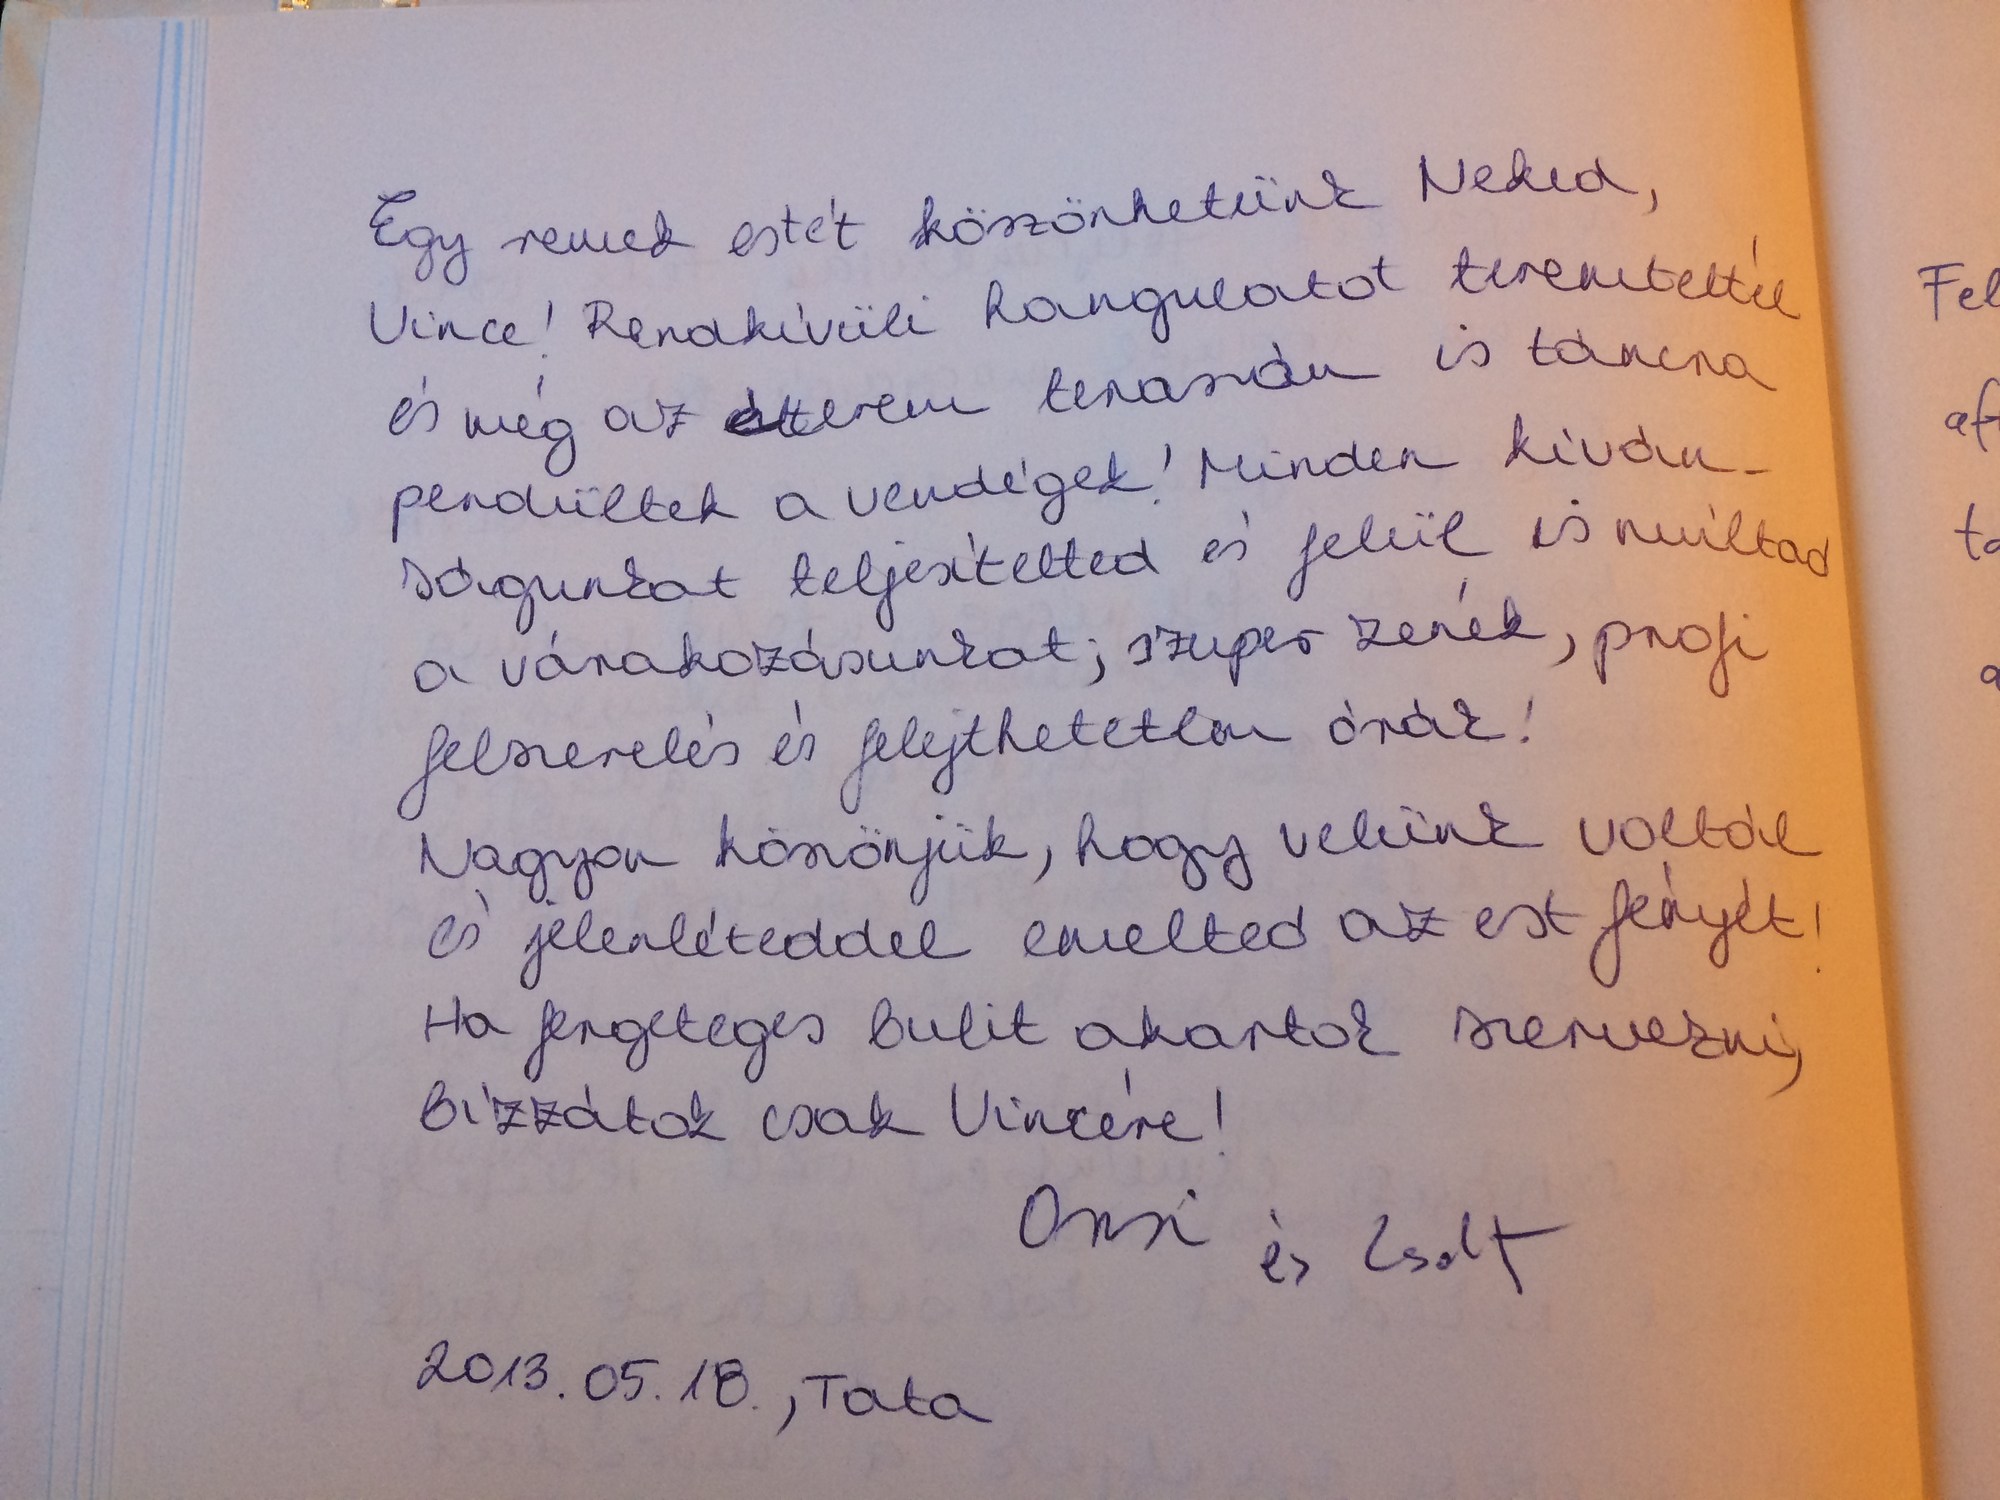 Egy remek estét köszönhetünk Neked,
Vince! Rendkívüli hangulatot teremtettél
és még az étterem teraszán is táncra
perdültek a vendégek! Minden kíván-
ságunkat teljesítetted és felül is múltad
a várakozásunkat; szuper zenék, profi
felszerelés és felejthetetlen órák!
Nagyon köszönjük, hogy velünk voltál
és jelenléteddel emelted az est fényét!
Ha fergeteges bulit akartok szervezni,
bízzátok csak Vincére!
Orsi és Zsolt
2013.05.18., Tata
Fel
aft
ta
a